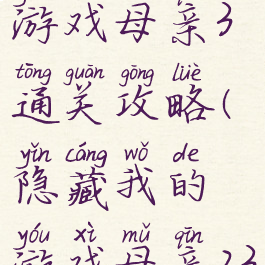 游戏母亲3
tōng guān gōng lüè
通关攻略(
yǐn cáng wǒ de
隐藏我的
yóu xì mǔ qīn
游戏母亲23